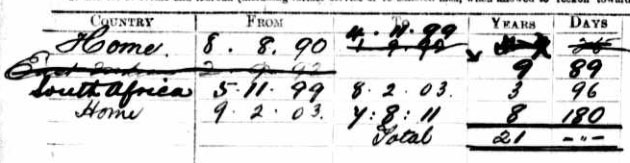 COUNTRY FROM TO YEARS DAYS
4.11.99
Home. 8.8.90
9 89
South Africa 5.11.99 8.2.03. 3 96
Home 9.2.03. 7:8:11 8 180
Total 21 -"-